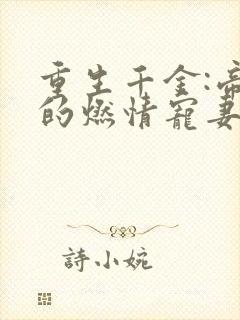 重生千金:帝
的燃情寵妻
詩小婉